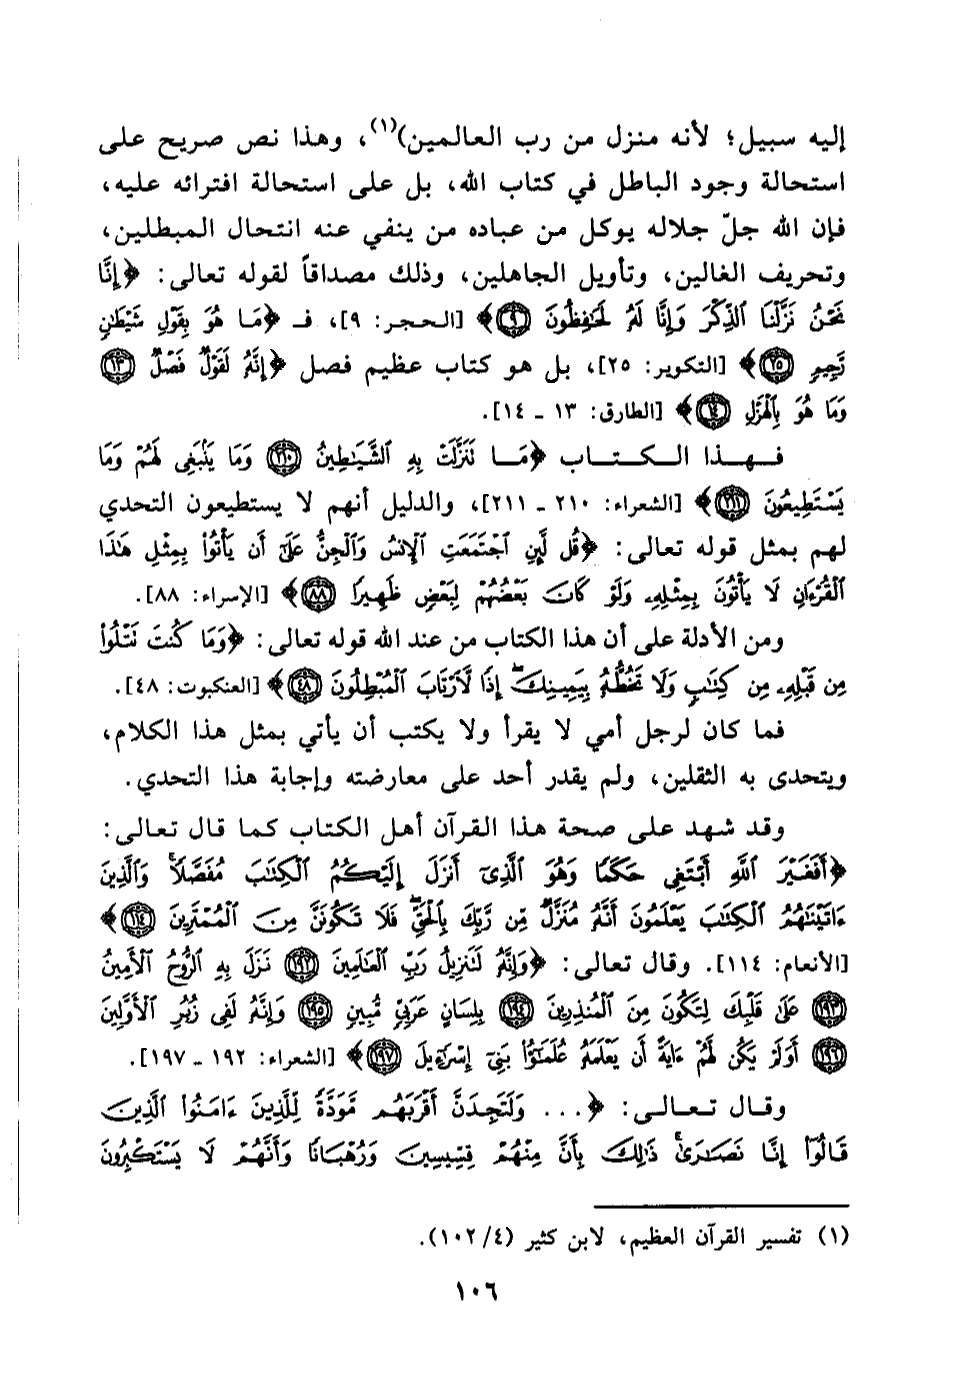 إليه سبيل؛ لأنه منزل من رب العالمين)(١)، وهذا نص صريح على
استحالة وجود الباطل في كتاب الله، بل على استحالة افترائه عليه،
فإن الله جلّ جلاله يوكل من عباده من ينفي عنه انتحال المبطلين،
وتحريف الغالين، وتأويل الجاهلين، وذلك مصداقاً لقوله تعالى: ﴿إِنَّا
نَحْنُ نَزَّلْنَا ٱلذِّكْرَ وَإِنَّا لَهُۥ لَحَٰفِظُونَ ۝٩﴾ [الحجر: ٩]، فـ ﴿مَا هُوَ بِقَوْلِ شَيْطَٰنٍ
رَّجِيمٍ ۝٢٥﴾ [التكوير: ٢٥]، بل هو كتاب عظيم فصل ﴿إِنَّهُۥ لَقَوْلٌ فَصْلٌ ۝١٣
وَمَا هُوَ بِٱلْهَزْلِ ۝١٤﴾ [الطارق: ١٣ - ١٤].
فهذا الكتاب ﴿مَا نَنَزَّلَتْ بِهِ ٱلشَّيَٰطِينُ ۝٢١٠ وَمَا يَنۢبَغِى لَهُمْ وَمَا
يَسْتَطِيعُونَ ۝٢١١﴾ [الشعراء: ٢١٠ - ٢١١]، والدليل أنهم لا يستطيعون التحدي
لهم بمثل قوله تعالى: ﴿قُل لَّئِنِ ٱجْتَمَعَتِ ٱلْإِنسُ وَٱلْجِنُّ عَلَىٰٓ أَن يَأْتُوا۟ بِمِثْلِ هَٰذَا
ٱلْقُرْءَانِ لَا يَأْتُونَ بِمِثْلِهِۦ وَلَوْ كَانَ بَعْضُهُمْ لِبَعْضٍ ظَهِيرًا ۝٨٨﴾ [الإسراء: ٨٨].
ومن الأدلة على أن هذا الكتاب من عند الله قوله تعالى: ﴿وَمَا كُنتَ نَتْلُوا۟
مِن قَبْلِهِۦ مِن كِتَٰبٍ وَلَا تَخُطُّهُۥ بِيَمِينِكَ ۖ إِذًا لَّٱرْتَابَ ٱلْمُبْطِلُونَ ۝٤٨﴾ [العنكبوت: ٤٨].
فما كان لرجل أمي لا يقرأ ولا يكتب أن يأتي بمثل هذا الكلام،
ويتحدى به الثقلين، ولم يقدر أحد على معارضته وإجابة هذا التحدي.
وقد شهد على صحة هذا القرآن أهل الكتاب كما قال تعالى:
﴿أَفَغَيْرَ ٱللَّهِ أَبْتَغِى حَكَمًا وَهُوَ ٱلَّذِىٓ أَنزَلَ إِلَيْكُمُ ٱلْكِتَٰبَ مُفَصَّلًا ۚ وَٱلَّذِينَ
ءَاتَيْنَٰهُمُ ٱلْكِتَٰبَ يَعْلَمُونَ أَنَّهُۥ مُنَزَّلٌ مِّن رَّبِّكَ بِٱلْحَقِّ ۖ فَلَا تَكُونَنَّ مِنَ ٱلْمُمْتَرِينَ ۝١١٤﴾
[الأنعام: ١١٤]. وقال تعالى: ﴿وَإِنَّهُۥ لَتَنزِيلُ رَبِّ ٱلْعَٰلَمِينَ ۝١٩٢ نَزَلَ بِهِ ٱلرُّوحُ ٱلْأَمِينُ
۝١٩٣ عَلَىٰ قَلْبِكَ لِتَكُونَ مِنَ ٱلْمُنذِرِينَ ۝١٩٤ بِلِسَانٍ عَرَبِىٍّ مُّبِينٍ ۝١٩٥ وَإِنَّهُۥ لَفِى زُبُرِ ٱلْأَوَّلِينَ
۝١٩٦ أَوَلَمْ يَكُن لَّهُمْ ءَايَةً أَن يَعْلَمَهُۥ عُلَمَٰٓؤُا۟ بَنِىٓ إِسْرَٰٓءِيلَ ۝١٩٧﴾ [الشعراء: ١٩٢ - ١٩٧].
وقال تعالى: ﴿... وَلَتَجِدَنَّ أَقْرَبَهُم مَّوَدَّةً لِّلَّذِينَ ءَامَنُوا۟ ٱلَّذِينَ
قَالُوٓا۟ إِنَّا نَصَٰرَىٰ ۚ ذَٰلِكَ بِأَنَّ مِنْهُمْ قِسِّيسِينَ وَرُهْبَانًا وَأَنَّهُمْ لَا يَسْتَكْبِرُونَ
(١) تفسير القرآن العظيم، لابن كثير (١٠٢/٤).
١٠٦